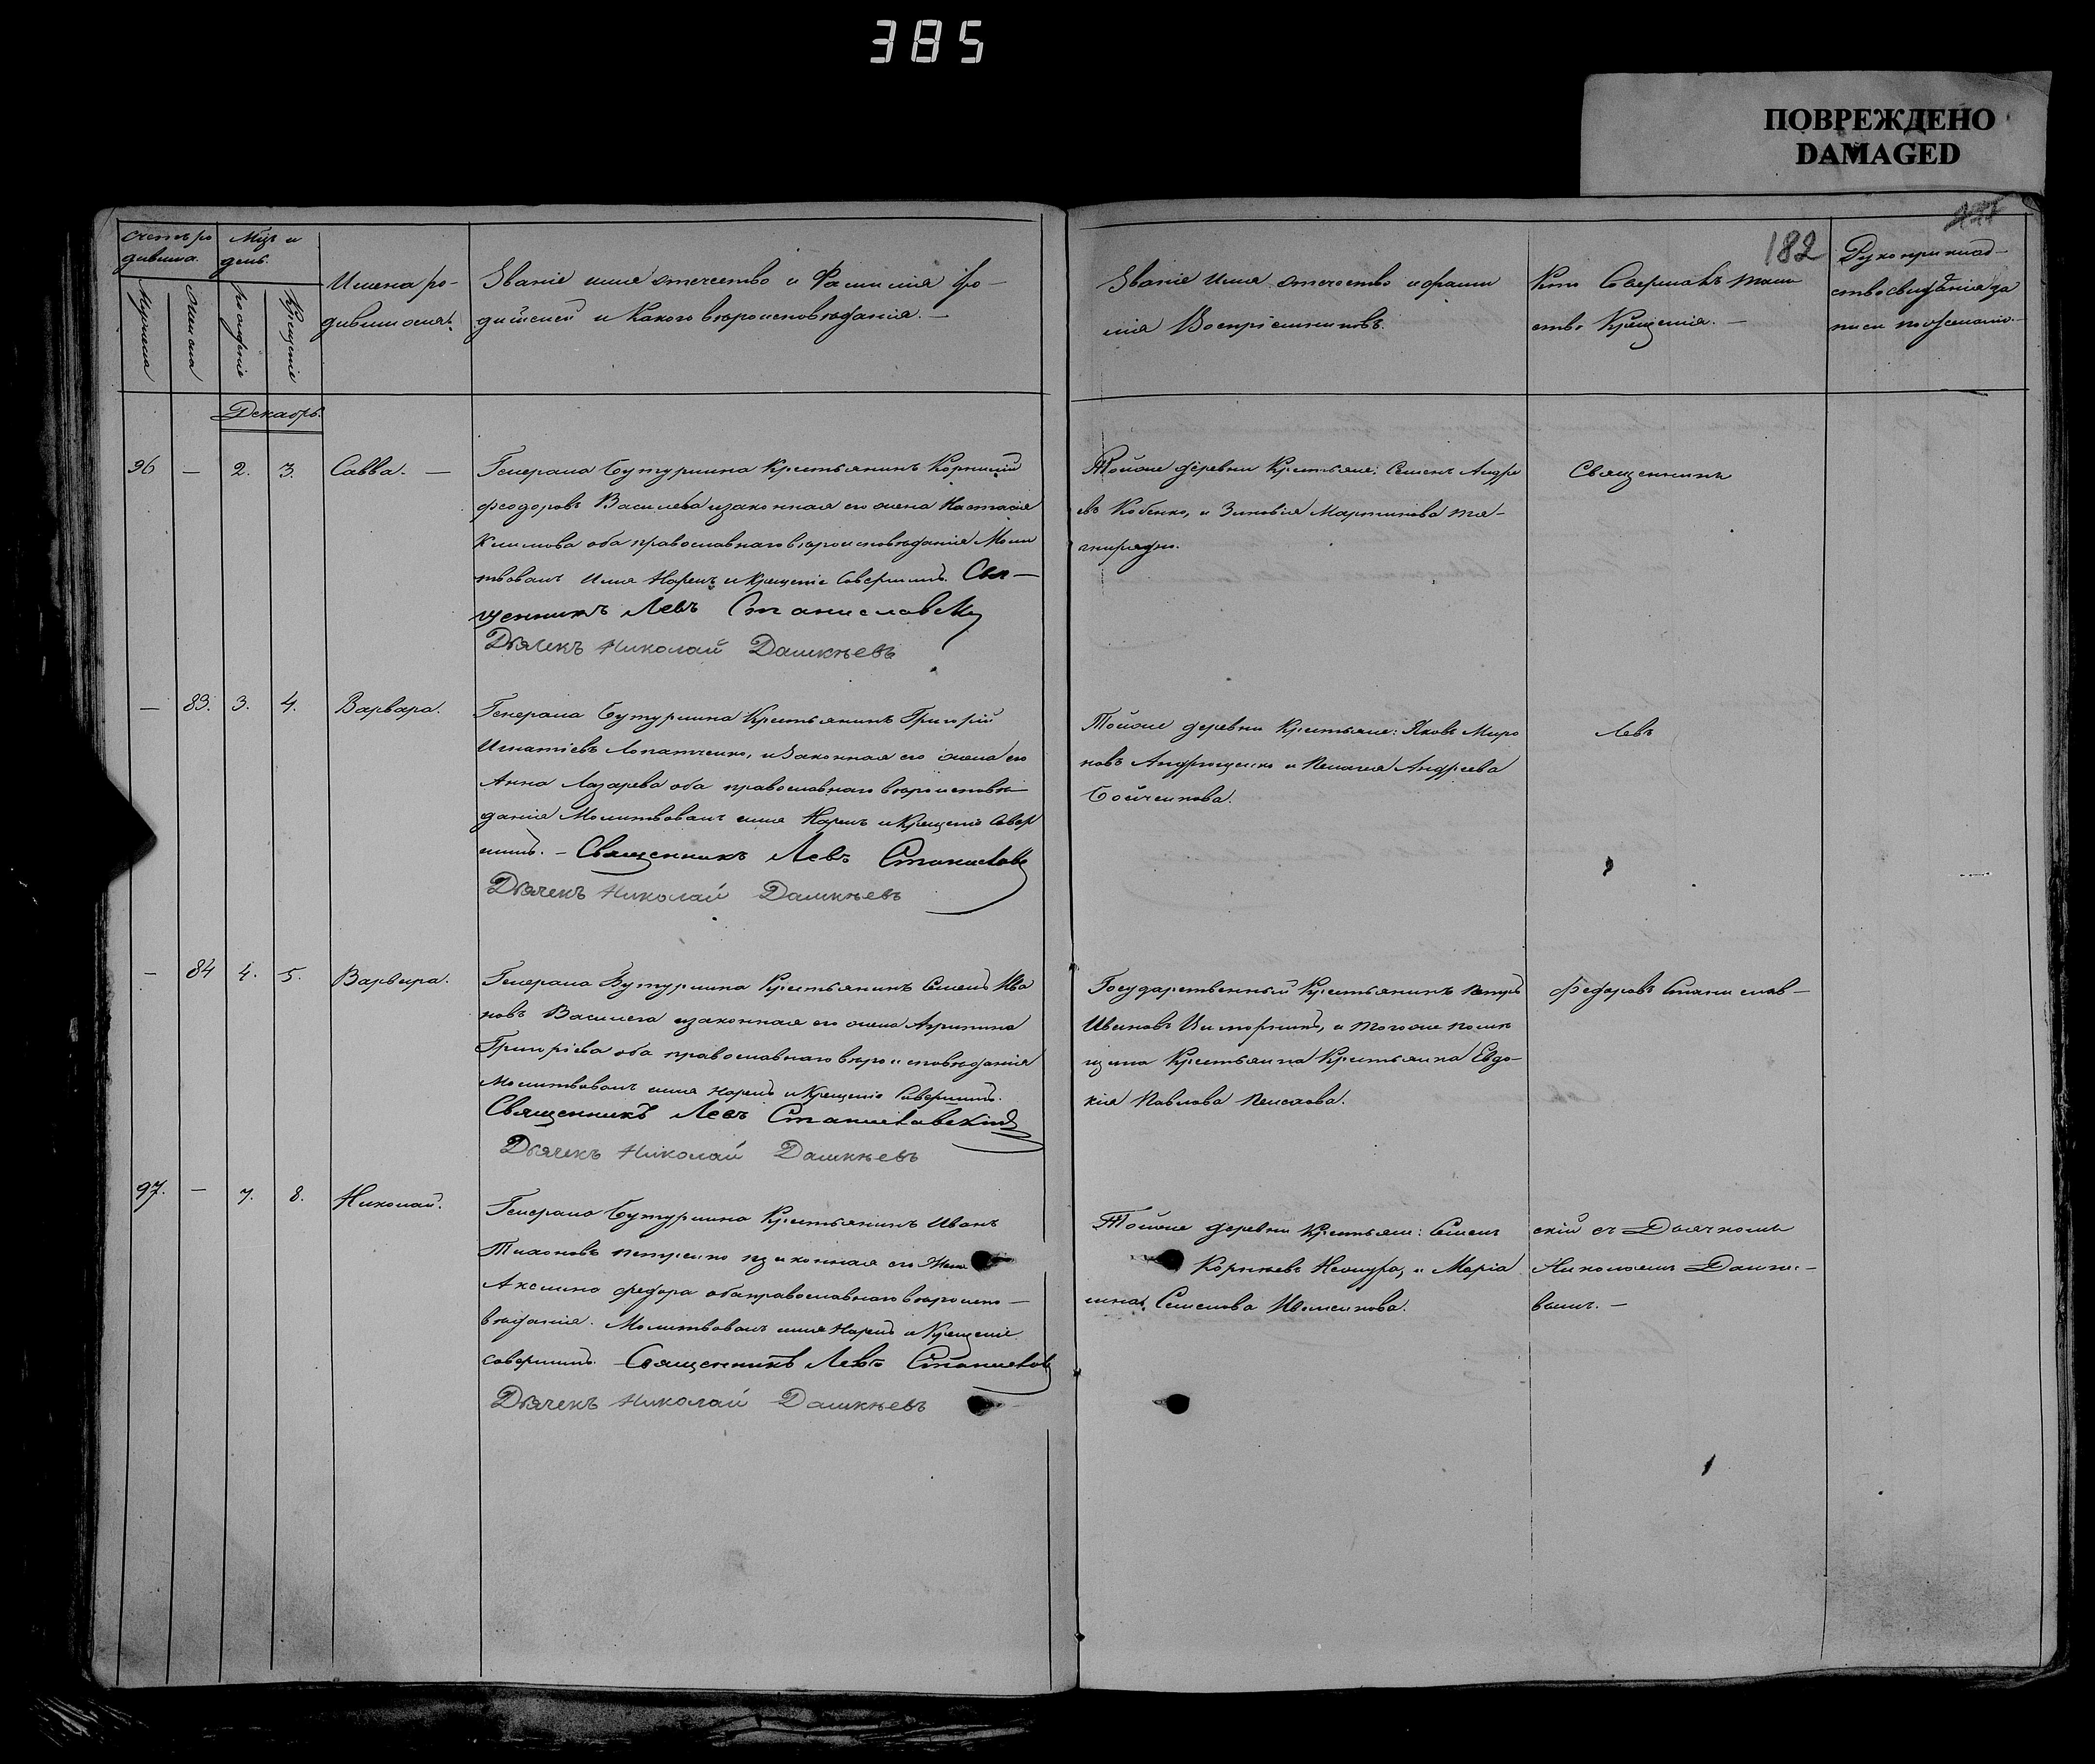 385
ПОВРЕЖДЕНО
DAMAGED
182
Счетъ ро
дившихся.
Мцъ и
день.
Мужеска
Женска
рожденіе
Крещеніе
Имена ро-
дившихся.
Званіе имя отечество и Фамилія ро-
дителей и Какого вѣроисповѣданія. —
Званіе имя отечество и фами
лія Воспріемниковъ.
Кто Совершалъ таин
ство Крещенія. —
Рукоприклад-
ство свидѣтелей за
писи по желанію. —
Декабрь.
96 — 2. 3. Савва. —
Генерала Бутурлина Крестьянинъ Корнилій
Феодоровъ Василева и законная его жена Настасія
Климова оба православнаго вѣроисповѣданія Моли
твовалъ Имя Нарекъ и Крещеніе Совершилъ. Свя-
щенникъ Левъ Станиславск
Дьячекъ Николай Дашкѣевъ
Тойже деревни Крестьяне: Семенъ Андре
евъ Кобенко, и Зиновія Мартинова
Священникъ
— 83. 3. 4. Варвара.
Генерала Бутурлина Крестьянинъ Григорій
Игнатіевъ Лопатченко, и Законная его жена его
Анна Лазарева оба православнаго вѣроисповѣ
данія Молитвовалъ имя Нарекъ и Крещеніе Совер
шилъ. — Священникъ Левъ Станиславс
Дьячекъ Николай Дашкѣевъ
Тойже деревни Крестьяне: Яковъ Миро
новъ Андрющенко и Пелагея Андреева
Бойченкова.
Левъ
— 84 4. 5. Варвара.
Генерала Бутурлина Крестьянинъ Семенъ Ива
новъ Василега и законная его жена Агрипина
Григоріева оба православнаго вѣроисповѣданія
Молитвовалъ имя нарекъ и Крещеніе Совершилъ.
Священникъ Левъ Станиславскій
Дьячекъ Николай Дашкѣевъ
Государственный Крестьянинъ Петръ
Ивановъ и тогоже помѣ
щика Крестьянина Крестьянка Евдо-
кія Павлова
Федоровъ Станислав-
97. — 7. 8. Николай.
Генерала Бутурлина Крестьянинъ Иванъ
Тихоновъ Петренко и законная его Жена
Аксинія Федора оба православнаго вѣроиспо-
вѣданія. Молитвовалъ имя Нарекъ и Крещеніе
совершилъ. Священникъ Левъ Станиславс
Дьячекъ Николай Дашкѣевъ
Тойже деревни Крестьяне: Семенъ
Корнѣевъ и Марія
Семенова
скій съ Дьячкомъ
Николаемъ Дашке-
вымъ. —